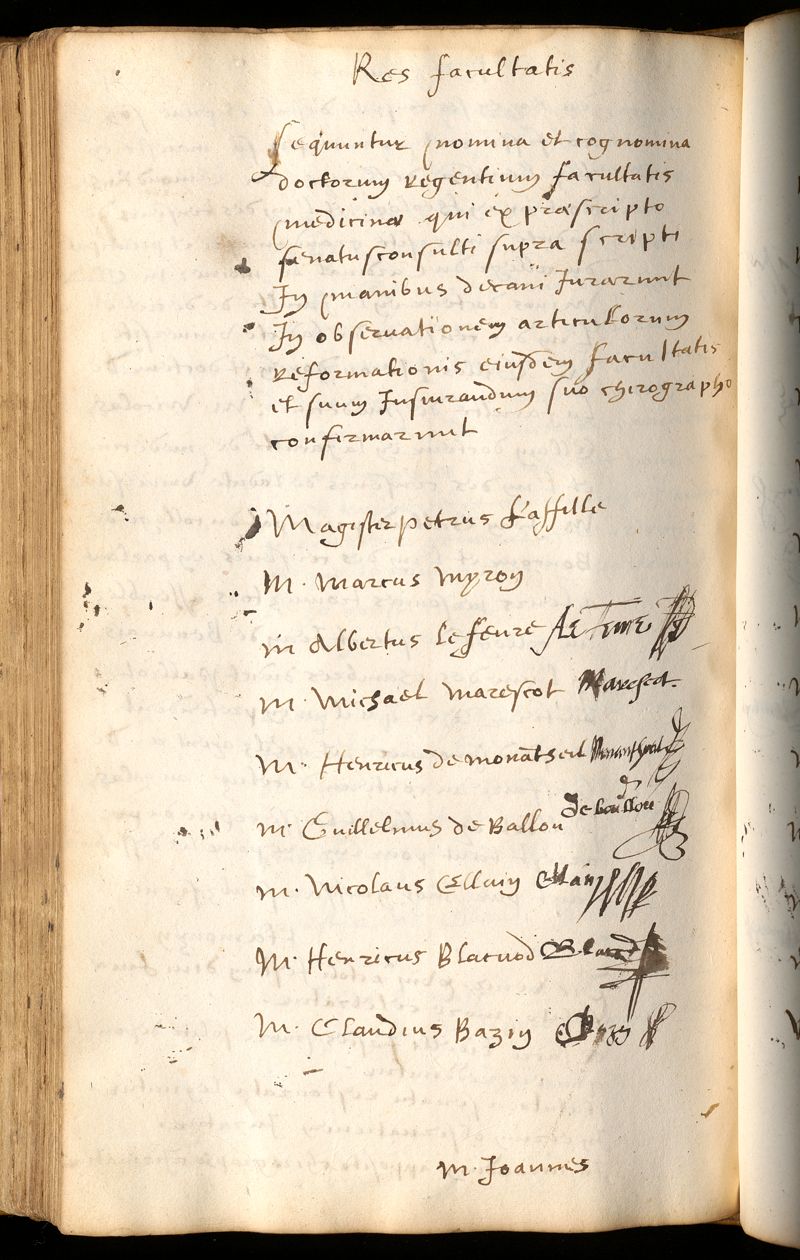 Res facultatis
Sequuntur nomina et cognomina
doctorum regentium facultatis
medicinæ qui ex præscripto
senatusconsulti supra scripti
In manibus decani Jurarunt
In observationem articulorum
reformationis eiusdem facultatis
et suum Jusiurandum suo chirographo
confirmarunt
Magister petrus Laffille
M. Marcus myron
M Albertus Lefeure
M. Michael marescot Marescot.
M. Henricus de monatseil
M. Guillelmus de Ballou de baillou
M. Nicolaus Ellain Ellain
M. Henricus Blacuod
M. Claudius Bazin
M. Joannes